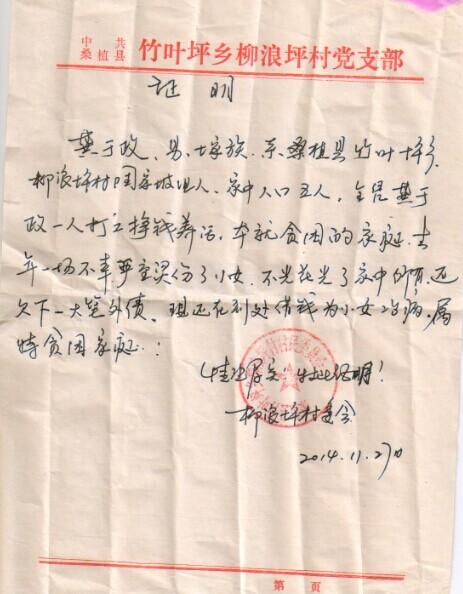 中共
桑植县 竹叶坪乡柳浪坪村党支部
证明
于政、男、土家族、系桑植县竹叶坪乡
柳浪坪村周家坡组人、家中人口五人、全是
政一人打工挣钱养活、本就贫困的家庭、去
年一场不幸严重烫伤了小女、不光花光了家中所有、还
欠下一大笔外债、现还在到处借钱为小女治病、属
特贫困家庭:
情况属实 特此证明!
柳浪坪村委会
2014.11.27日
第 页